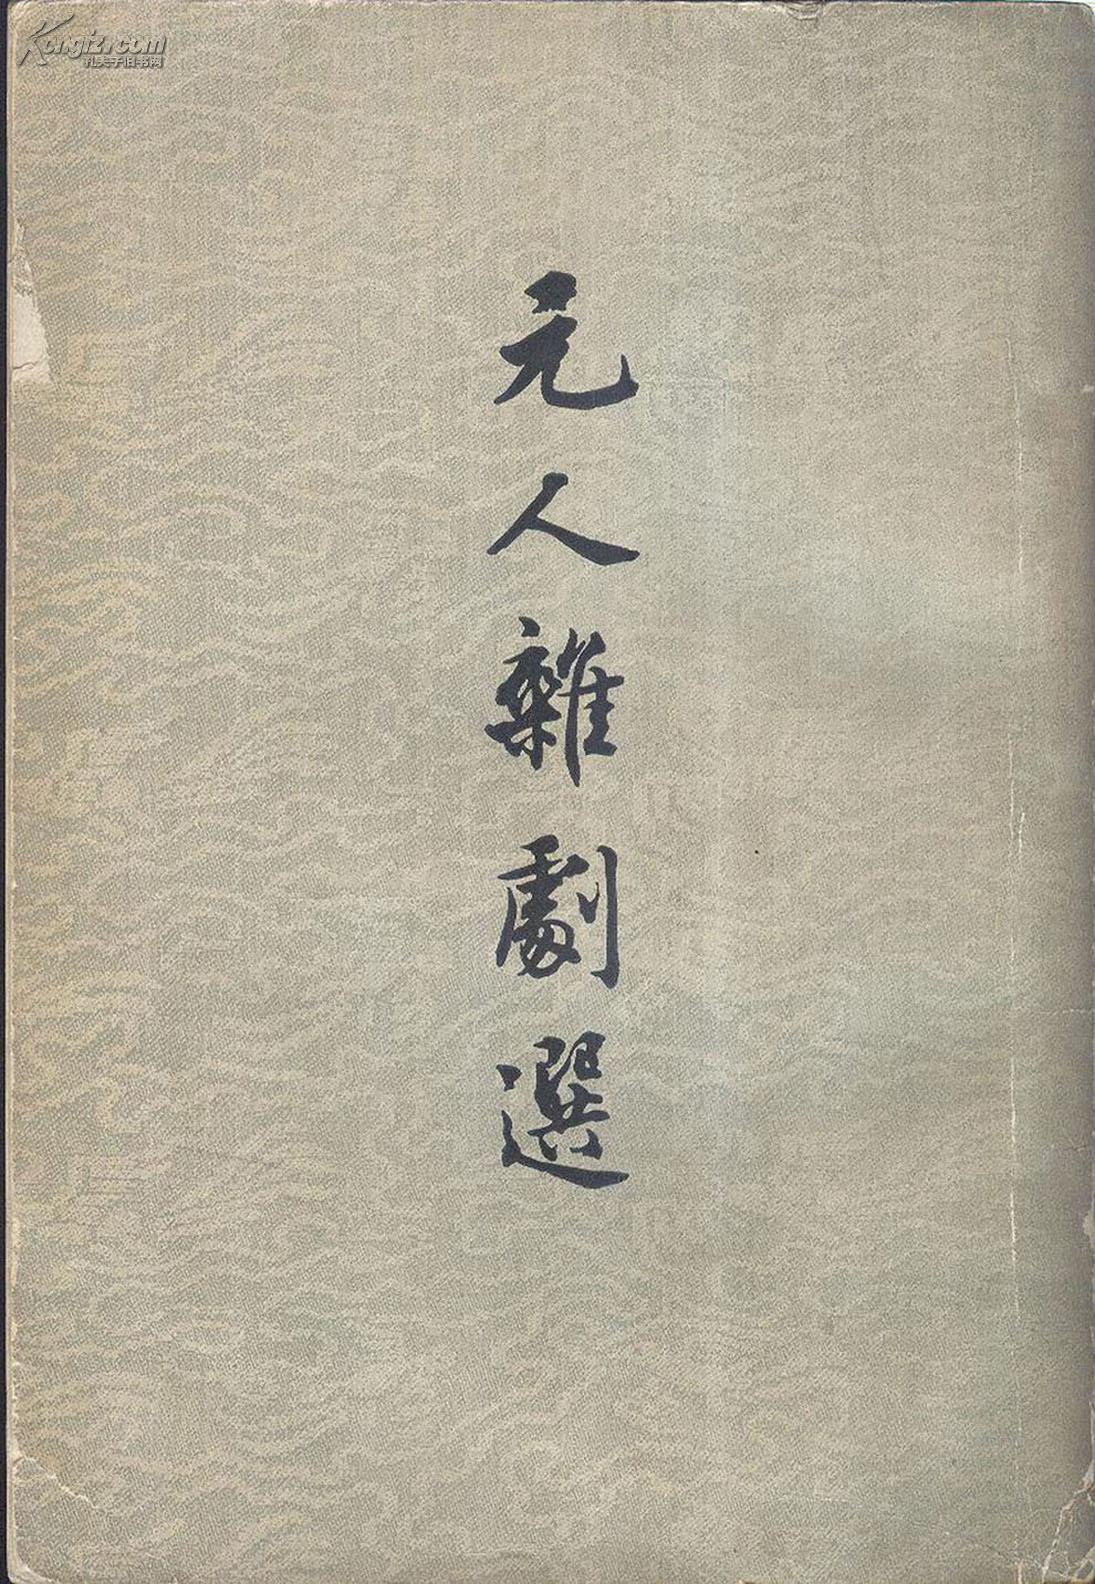 Kongfz.com
孔夫子旧书网
元人雜劇選